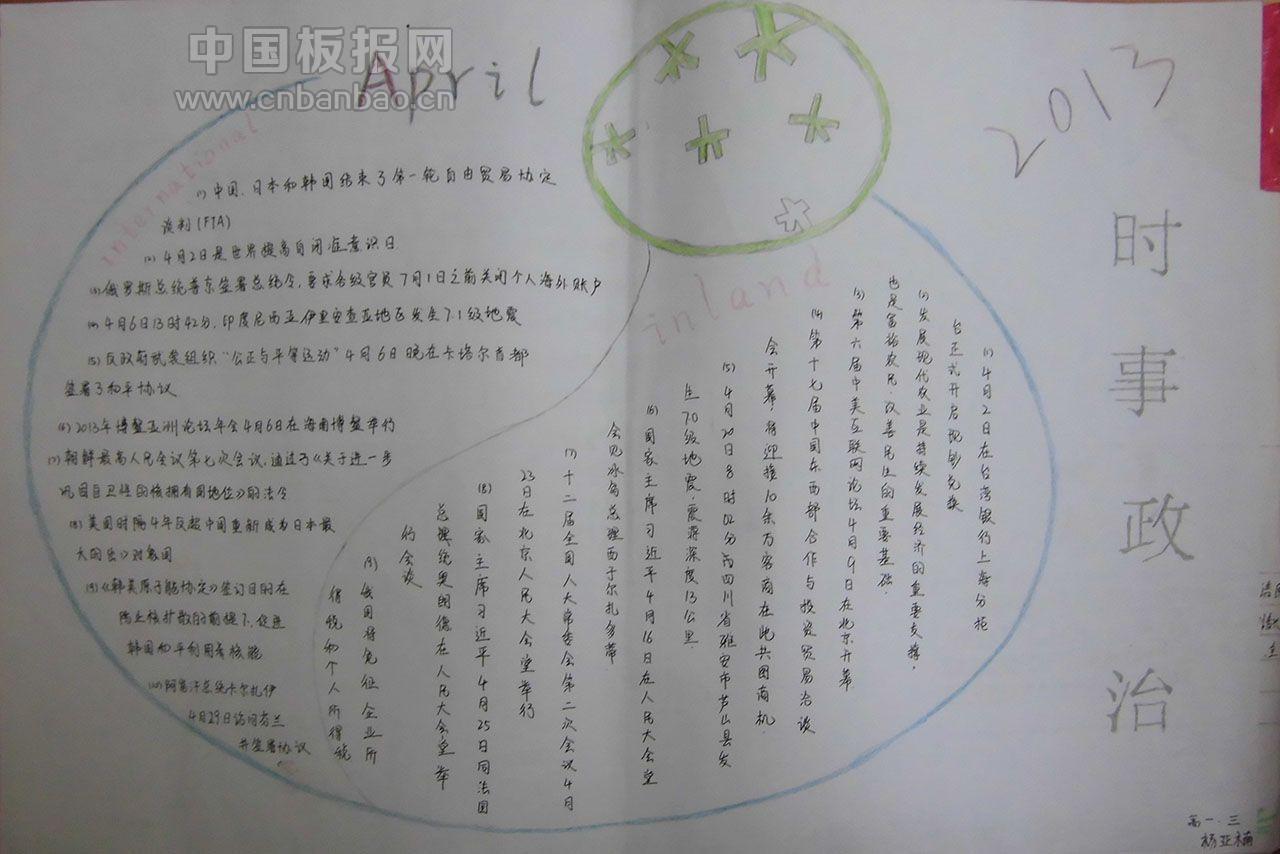 中国板报网
www.cnbanbao.cn
April
2013
时事政治
international
(1)中国、日本和韩国结束了第一轮自由贸易协定
谈判(FTA)
(2)4月2日是世界提高自闭症意识日
(3)俄罗斯总统普京签署总统令,要求各级官员7月1日之前关闭个人海外账户
(4)4月6日13时42分,印度尼西亚伊里安查亚地区发生7.1级地震
(5)反政府武装组织“公正与平等运动”4月6日晚在卡塔尔首都
签署了和平协议
(6)2013年博鳌亚洲论坛年会4月6日在海南博鳌举行
(7)朝鲜最高人民会议第七次会议,通过了《关于进一步
巩固自卫性的核拥有国地位》的法令
(8)美国时隔4年反超中国重新成为日本最
大的出口对象国
(9)《韩美原子能协定》签订目的在
防止核扩散的前提下,促进
韩国和平利用着核能
(10)阿富汗总统卡尔扎伊
4月29日访问芬兰
并签署协议
inland
(1)4月2日在台湾银行上海分行
台正式开启现钞兑换
(2)发展现代农业是持续发展经济的重要支撑,
也是富裕农民、改善民生的重要基础.
(3)第六届中美互联网论坛4月9日在北京开幕
(4)第十七届中国东西部合作与投资贸易洽谈
会开幕,将迎接10余万客商在此共图商机.
(5)4月20日8时02分西四川省雅安市芦山县发
生7.0级地震,震源深度13公里.
(6)国家主席习近平4月16日在人民大会堂
会见冰岛总理西于尔扎多蒂
(7)十二届全国人大常委会第二次会议4月
23日在北京人民大会堂举行
(8)国家主席习近平4月25日同法国
总理统奥朗德在人民大会堂举
行会谈
(9)俄国将免征企业所
得税和个人所得税
高一.三
杨亚楠